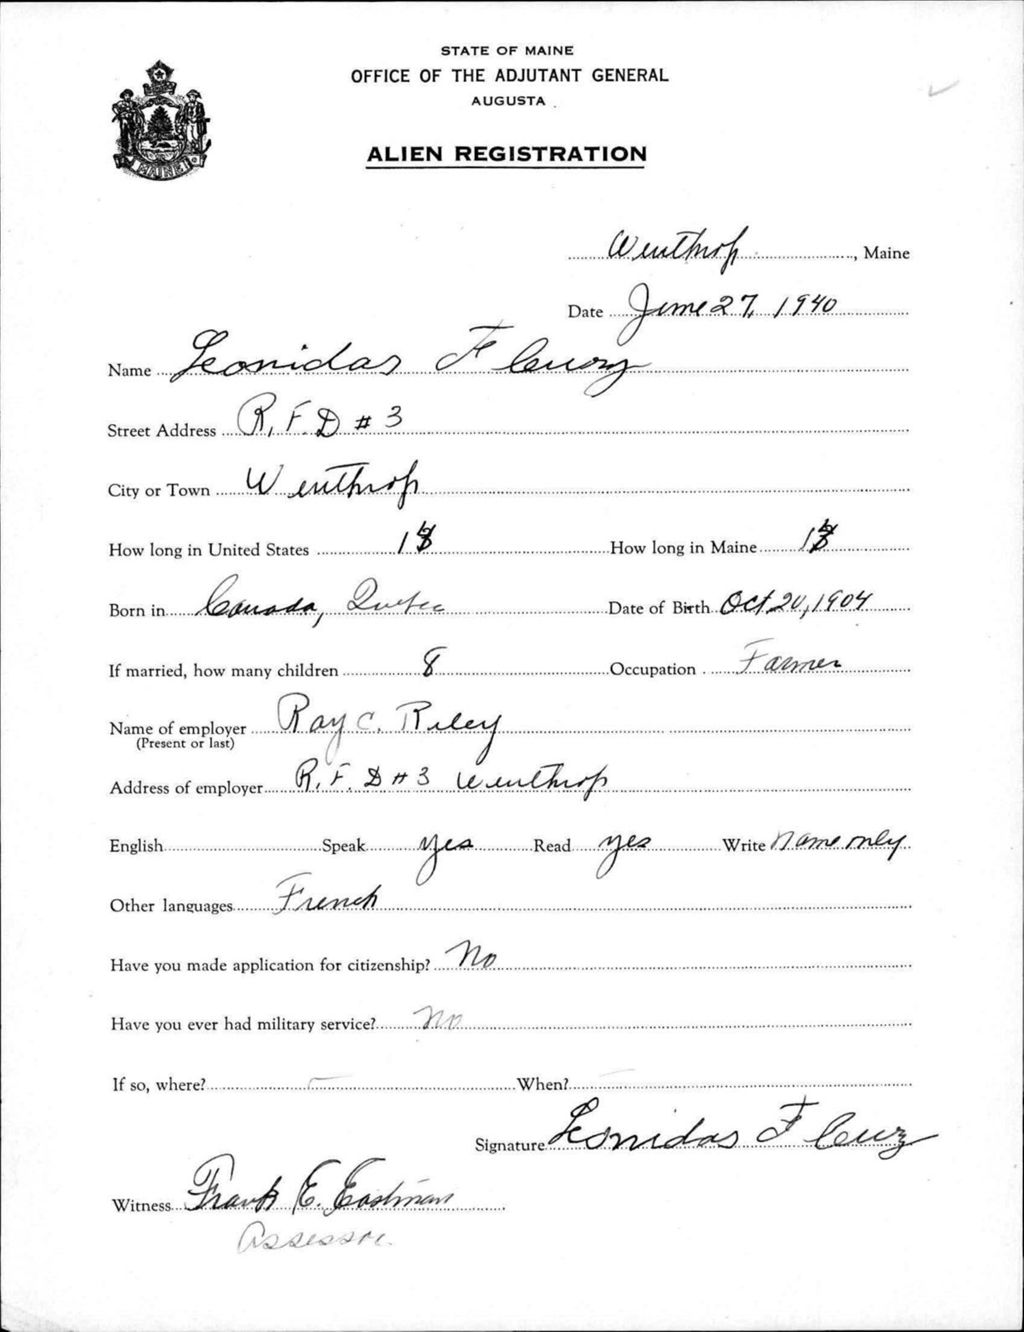 STATE OF MAINE
OFFICE OF THE ADJUTANT GENERAL
AUGUSTA
ALIEN REGISTRATION
MAINE
Winthrop, Maine
Date June 27, 1940
Name Leonidas Fleury
Street Address R.F.D #3
City or Town Winthrop
How long in United States How long in Maine
Born in Canada, Quebec Date of Birth Oct 20, 1904
If married, how many children 8 Occupation Farmer
Name of employer Ray C. Riley
(Present or last)
Address of employer R.F.D #3 Winthrop
English Speak yes Read yes Write Name only
Other languages French
Have you made application for citizenship? No
Have you ever had military service? No
If so, where? — When? —
Signature Leonidas Fleury
Witness Frank E. Eastman
Assessor